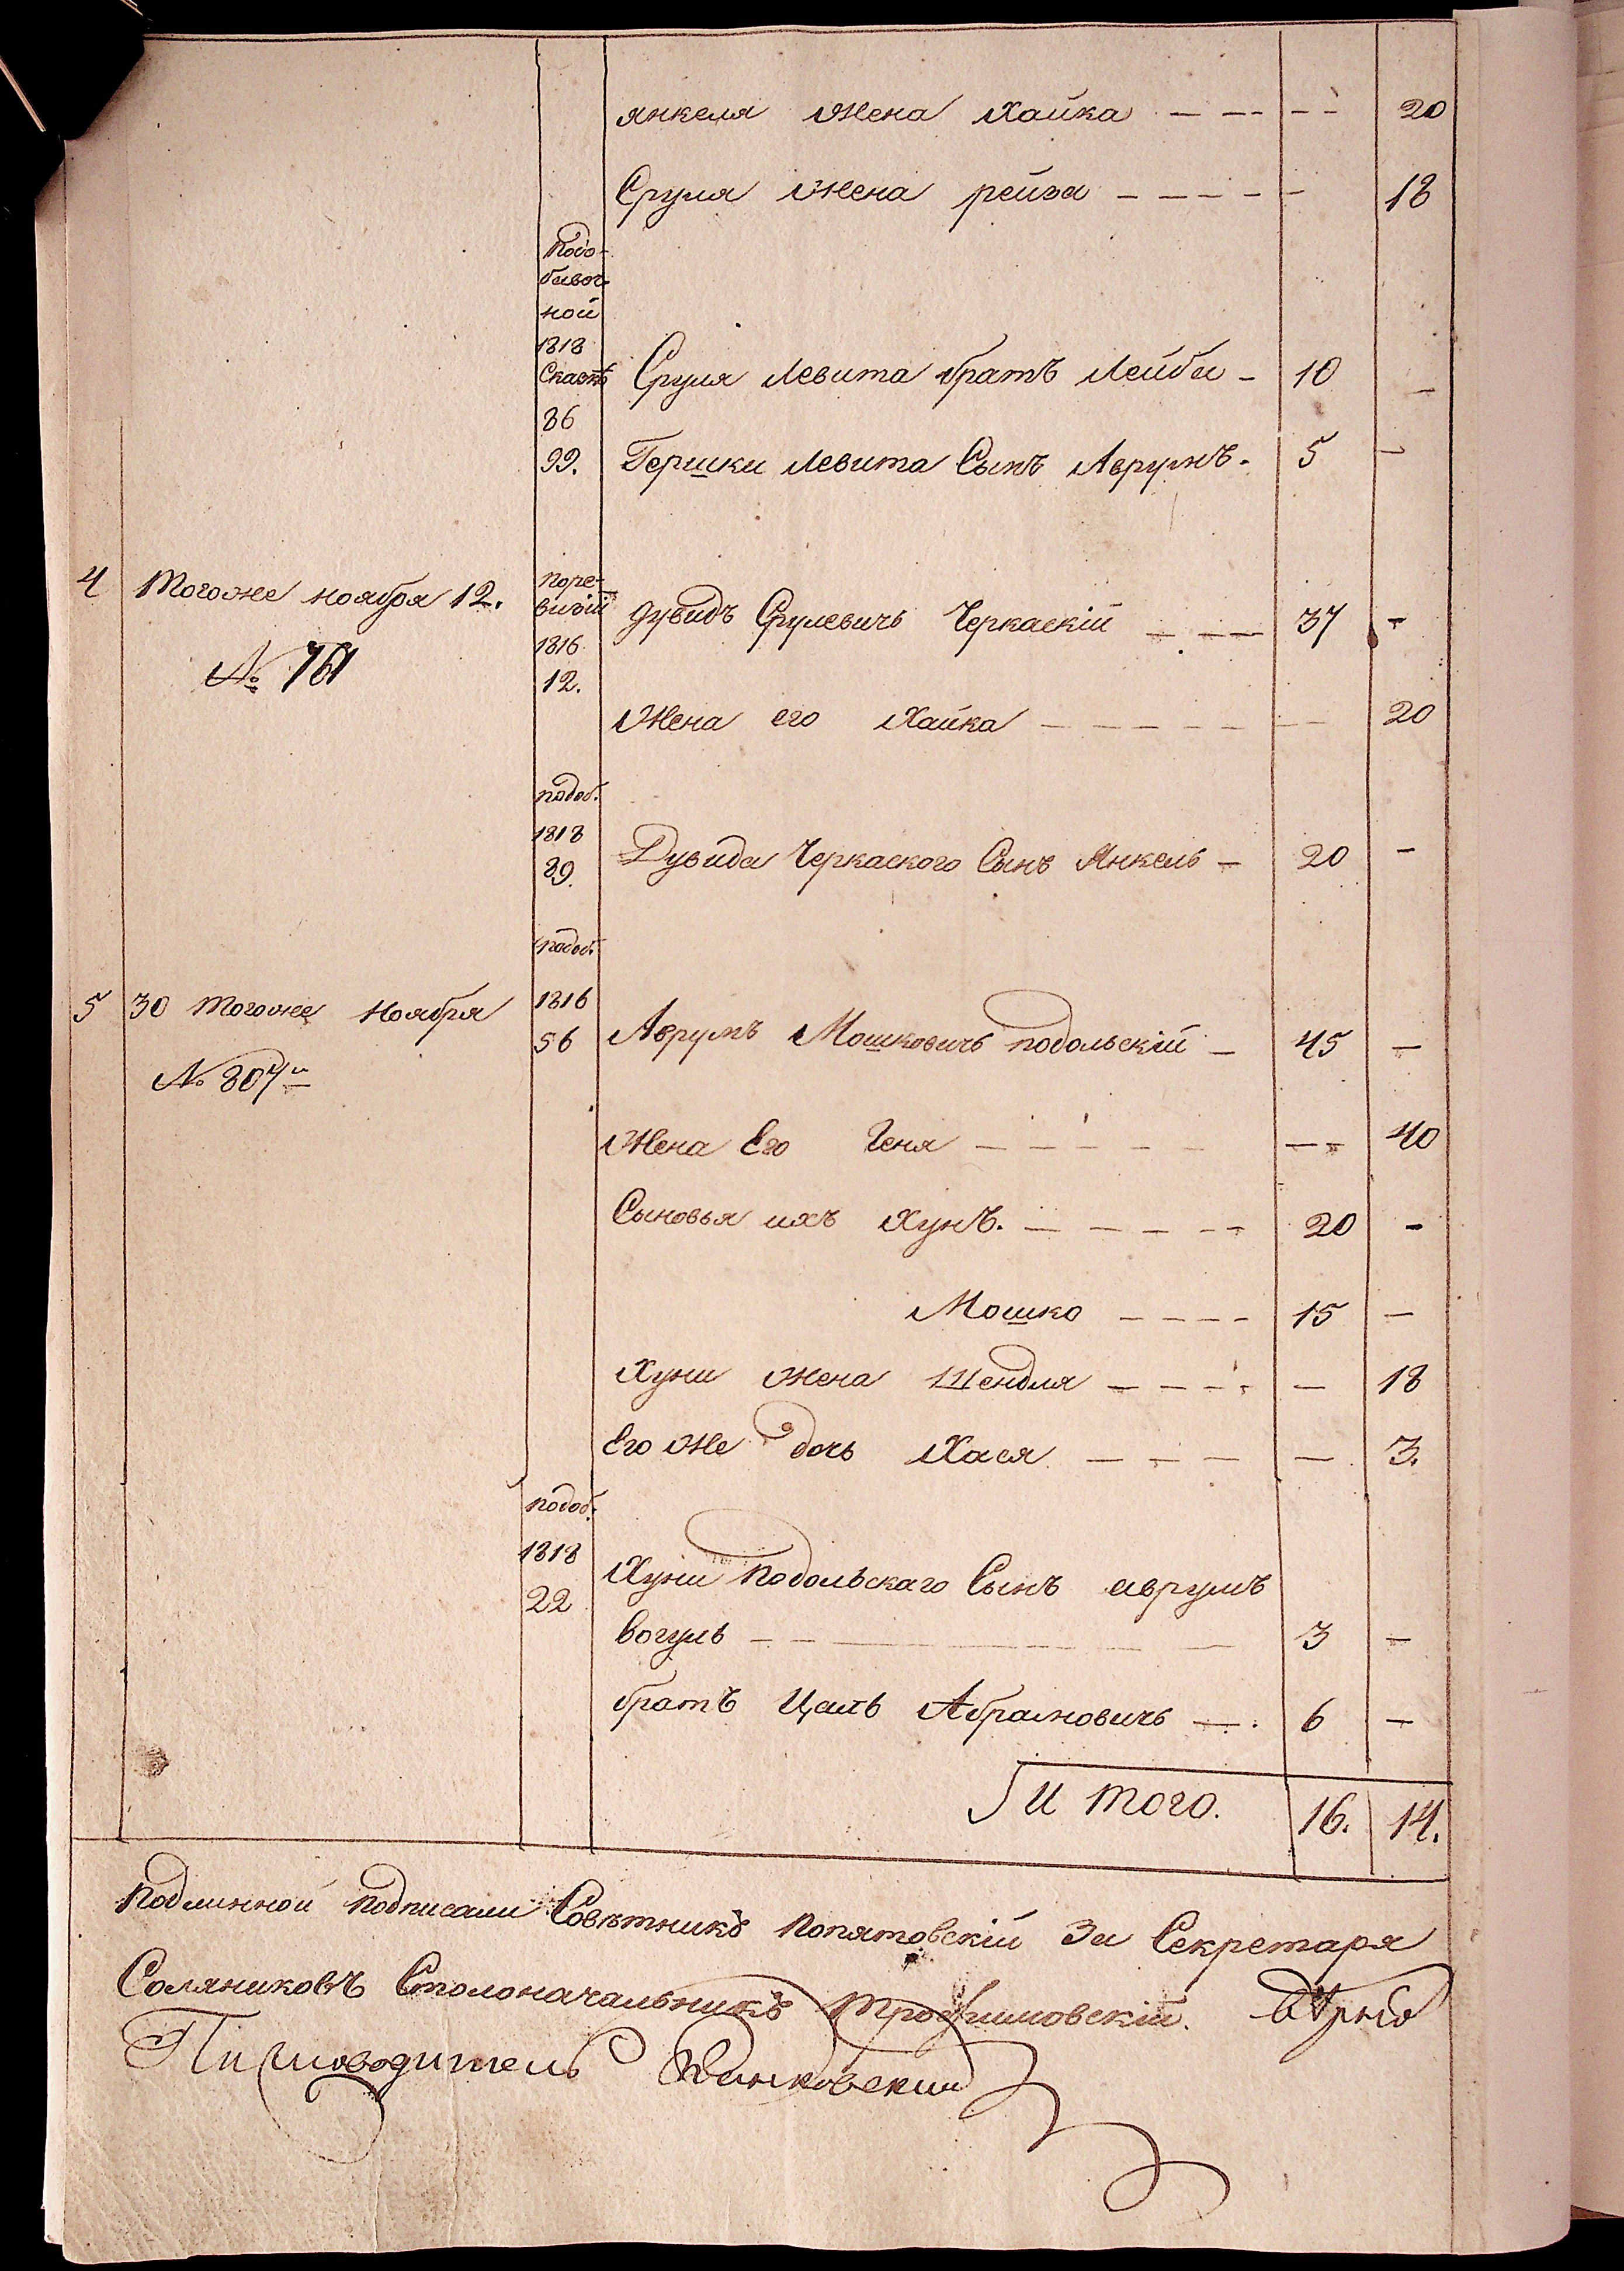 Янкеля жена Хайка — — — — 20
Сруля жена рейза — — — — — 18
Подо-
бавоч-
ной
1818
Сказкѣ Сруля Левита братъ Лейба — 10 —
86
99. Гершки Левита Сынъ Аврумъ. 5 —
4 Тогоже ноября 12. поре-
визіи Дувидъ Срулевичь Черкаскій — — — 37 —
№ 761 1816
12.
Жена его Хайка — — — — — — 20
подоб.
1818
89. Дувида Черкаского Сынъ Янкель — 20 —
подоб.
5 30 тогоже Ноября 1816
56 Аврумъ Мошковичь подольскій — 45 —
№ 807
Жена Его Геня — — — — — — — 40
Сыновья ихъ Хунъ. — — — — — 20 —
Мошко — — — — 15 —
Хуни жена Шендля — — — — — 18
Его же дочь Хася — — — — — 3.
подоб.
1818
22 Хуни Подольскаго Сынъ аврумъ
вогуль — — — — — — — — 3 —
братъ Цаль Абрамовичь — . 6 —
И того. 16. 14.
Подлинной подписали Совѣтникъ Понятовскій За Секретаря
Соляниковъ Столоначальникъ Трофимовскій. Вѣрно
Письмоводитель